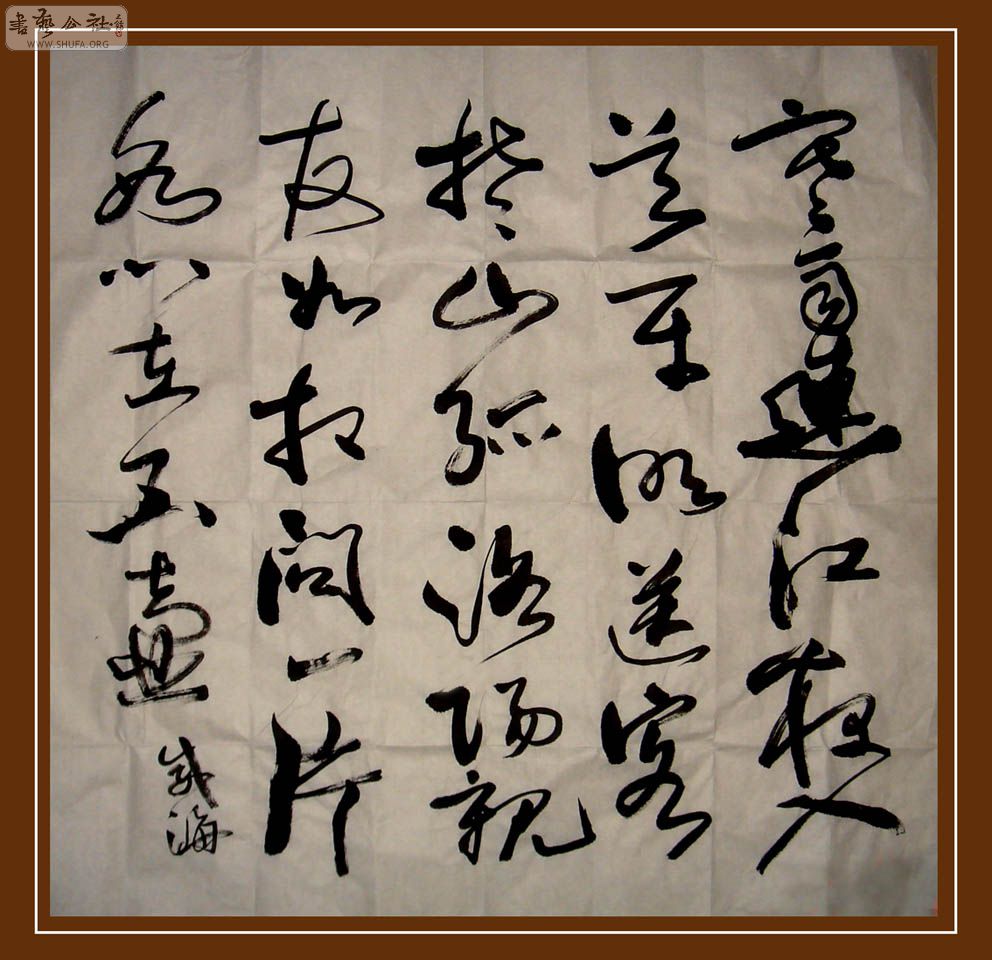 書藝公社
WWW.SHUFA.ORG
寒雨連江夜入
吴平明送客
楚山孤洛陽親
友如相問一片
冰心在玉壺
海